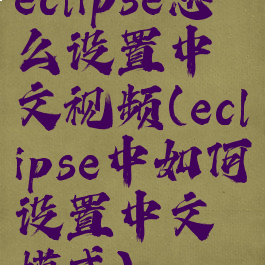 eclipse怎
么设置中
文视频(ecl
ipse中如何
设置中文
模式)